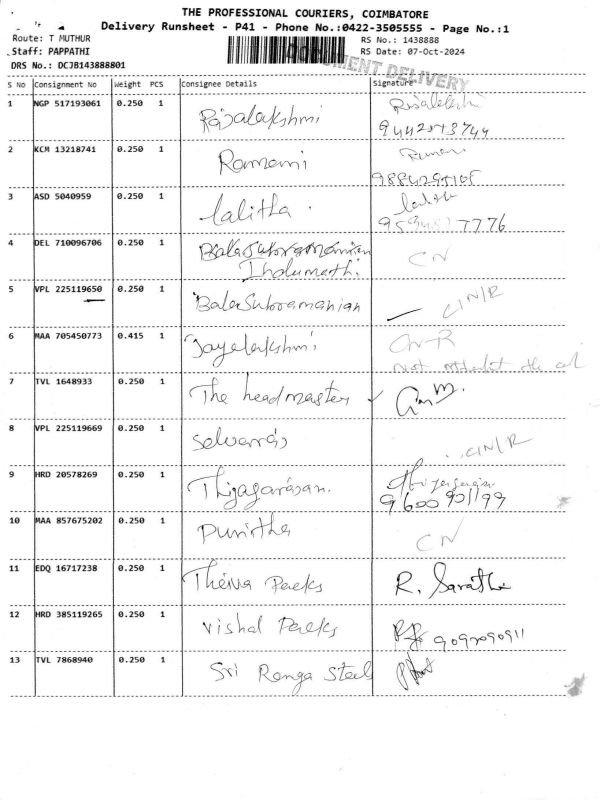 THE PROFESSIONAL COURIERS, COIMBATORE
Delivery Runsheet - P41 - Phone No.:0422-3505555 - Page No.:1
Route: T MUTHUR
RS No.: 1438888
Staff: PAPPATHI
RS Date: 07-Oct-2024
DRS No.: DCJB143888801
DOCUMENT DELIVERY
S No Consignment No Weight PCS Consignee Details Signature
1 NGP 517193061 0.250 1 Rajalakshmi
2 KCM 13218741 0.250 1 Ramani
3 ASD 5040959 0.250 1 Lalitha .
4 DEL 710096706 0.250 1 BalaSubramanian CN
Indumathi.
5 VPL 225119650 0.250 1 BalaSubramanian — CIN/R
6 MAA 705450773 0.415 1 Jayalakshmi
7 TVL 1648933 0.250 1 The headmaster ✓
8 VPL 225119669 0.250 1 Selvaraj CIN/R
9 HRD 20578269 0.250 1 Thijagarasan.
9600901199
10 MAA 857675202 0.250 1 Punitha CN
11 EDQ 16717238 0.250 1 Theiva Parks R. Sarathi
12 HRD 385119265 0.250 1 Vishal Parks 9092090911
13 TVL 7868940 0.250 1 Sri Ranga Steel